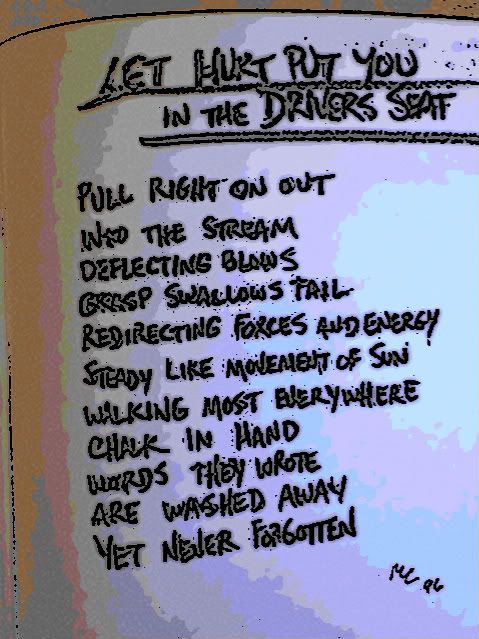 LET HURT PUT YOU
IN THE DRIVERS SEAT
PULL RIGHT ON OUT
INTO THE STREAM
DEFLECTING BLOWS
GRASP SWALLOWS TAIL
REDIRECTING FORCES AND ENERGY
STEADY LIKE MOVEMENT OF SUN
WALKING MOST EVERYWHERE
CHALK IN HAND
WORDS THEY WROTE
ARE WASHED AWAY
YET NEVER FORGOTTEN